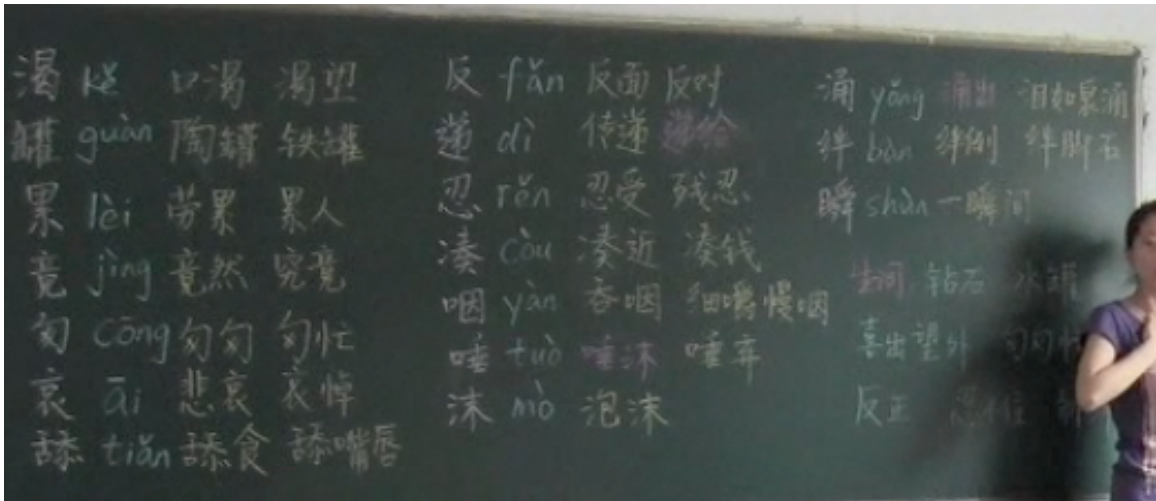 渴 kě 口渴 渴望
罐 guàn 陶罐 铁罐
累 lèi 劳累 累人
竟 jìng 竟然 究竟
匆 cōng 匆匆 匆忙
哀 āi 悲哀 哀悼
舔 tiǎn 舔食 舔嘴唇
反 fǎn 反面 反对
递 dì 传递 递给
忍 rěn 忍受 残忍
凑 còu 凑近 凑钱
咽 yàn 吞咽 细嚼慢咽
唾 tuò 唾沫 唾弃
沫 mò 泡沫
涌 yǒng 涌出 泪如泉涌
绊 bàn 绊倒 绊脚石
瞬 shùn 一瞬间
钻石 水罐
喜出望外 匆匆忙
反正